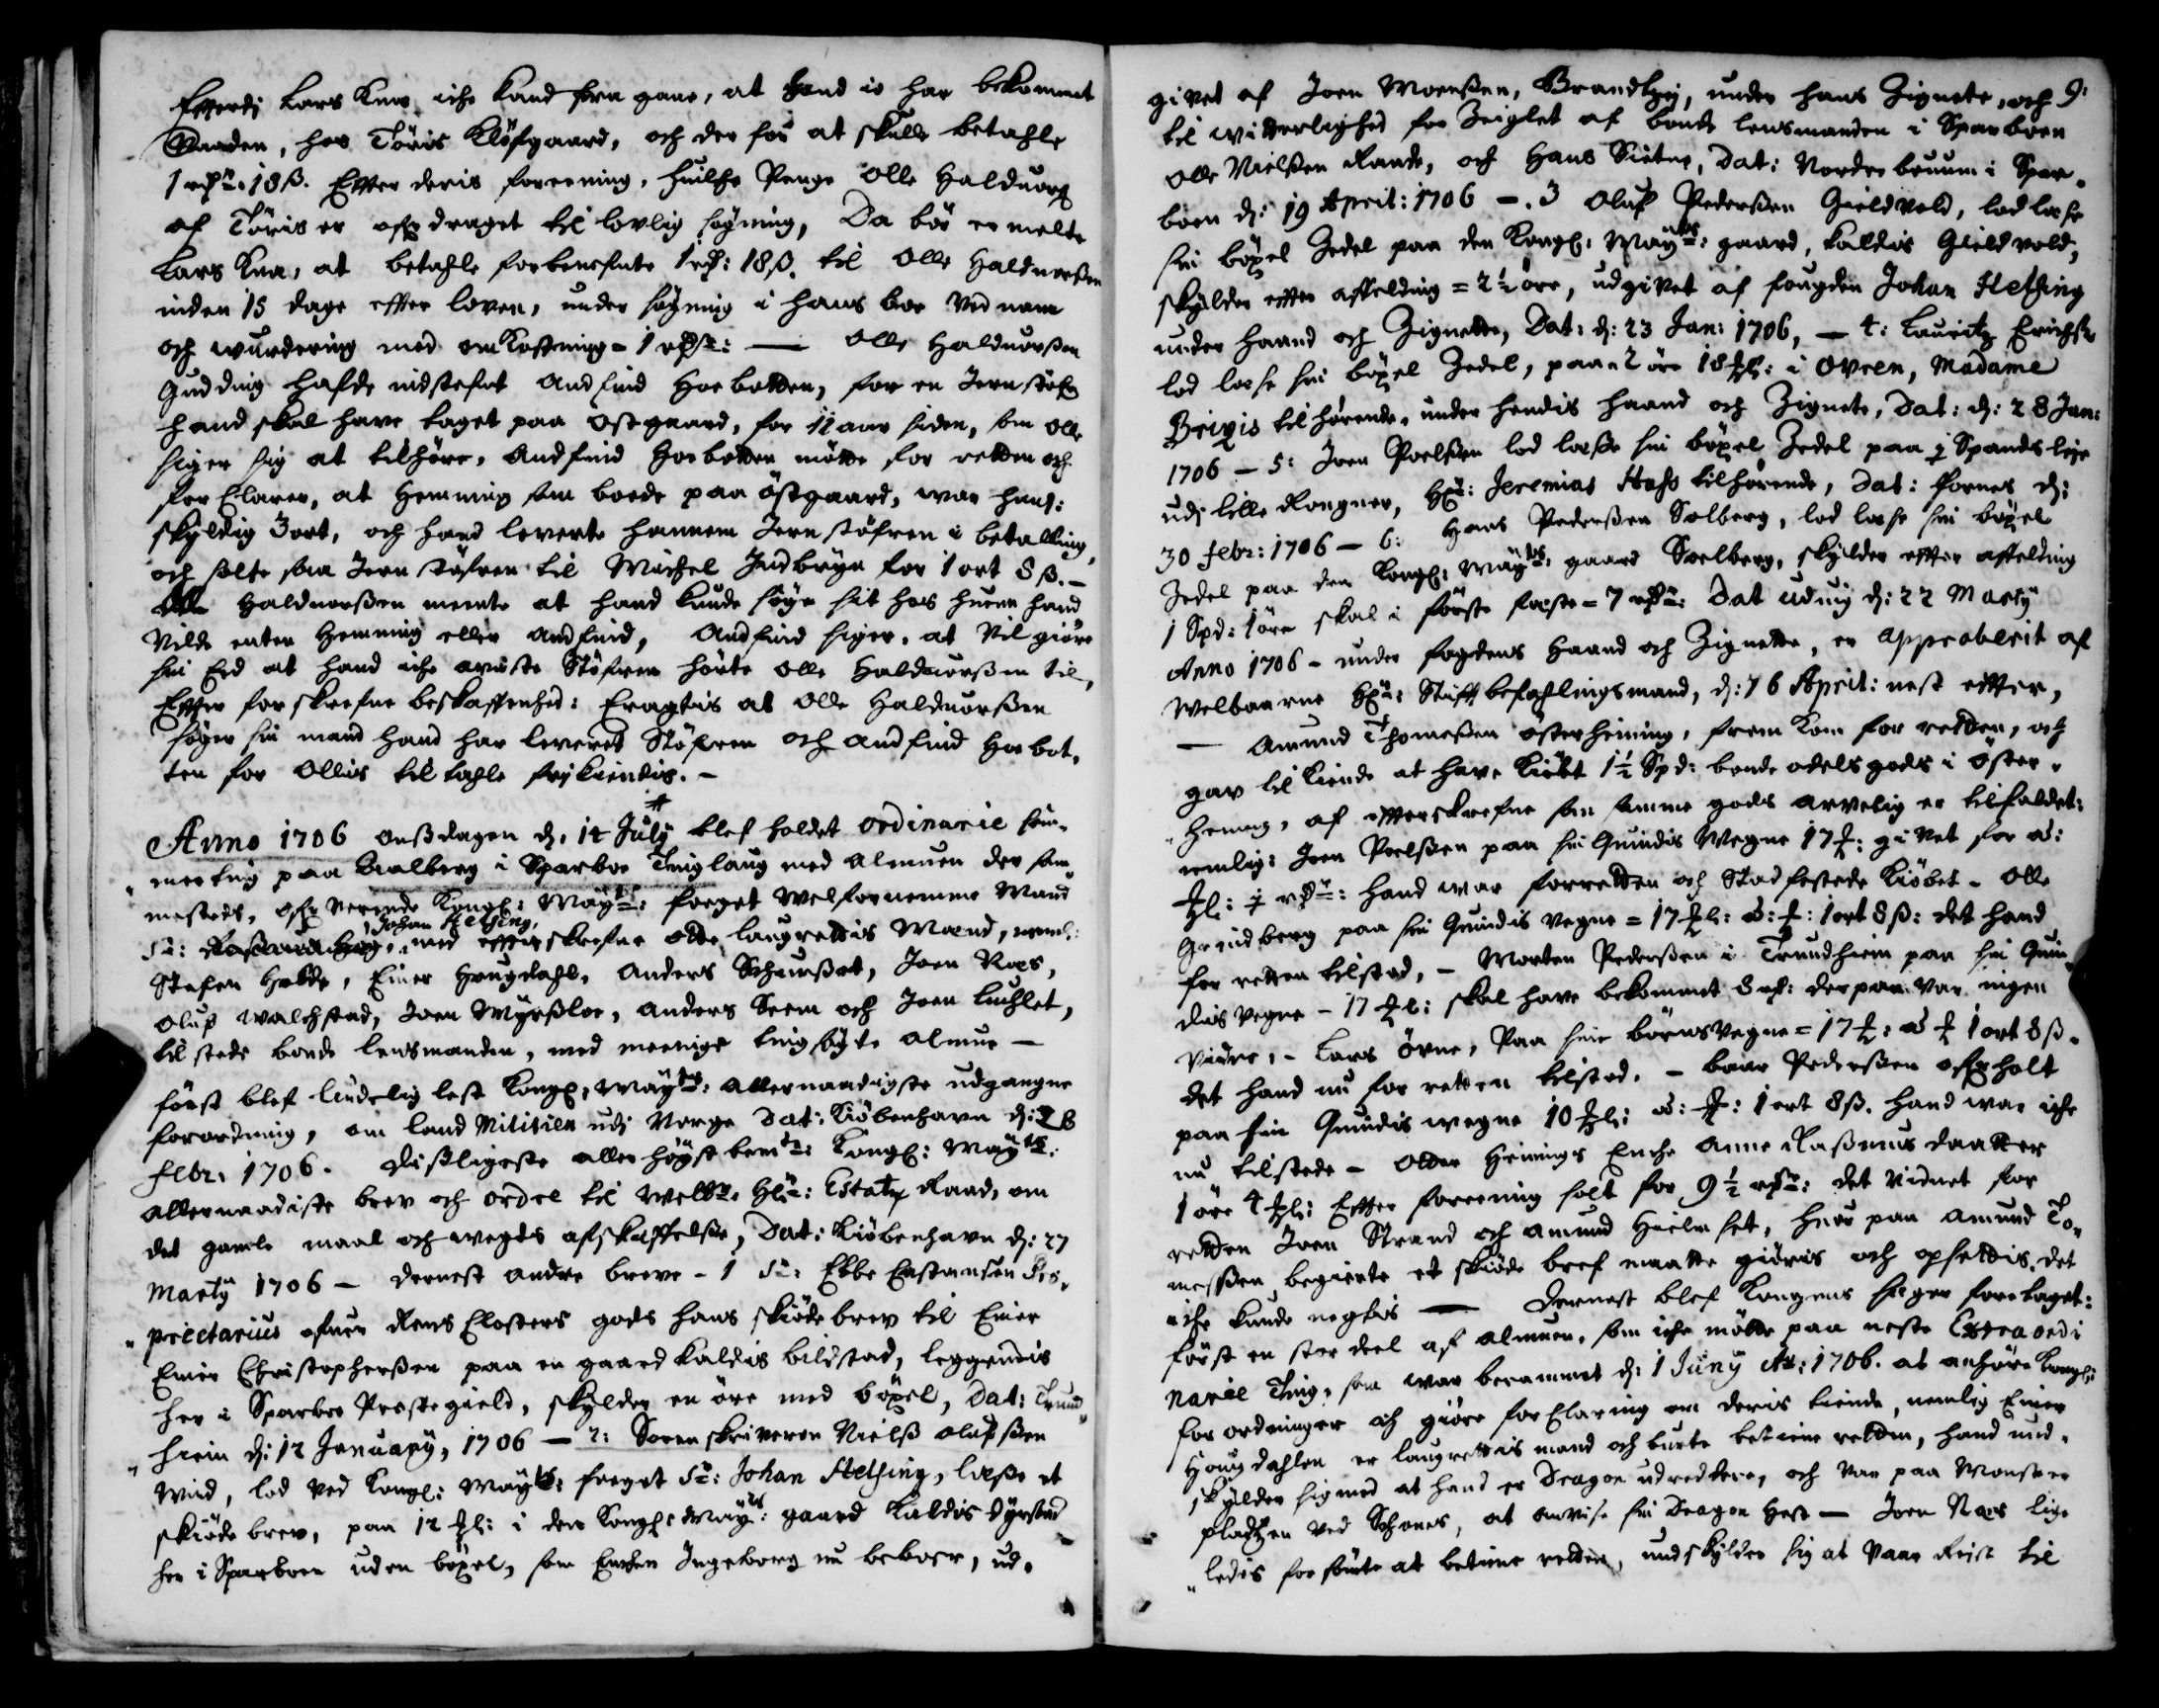 Efferdj Lars Kna iche kand fra gaae, at hand io har bekommet
Vaaden, hos Töris Kløfgaard, och der for at skulle betahle
1 rdr: 18 ß. Effter deris foreening, huilche Penge Olle Halduors
af Töris er ofver draget til lovlig søgning, Da bör ermelte
Lars Knas, at betahle forbenefnte 1 rdr: 18 ß. til Olle Halduorßen
inden 15 dage effter loven, under søgning i hans boe ved nam
och wurdering med omkostning = 1 rdr: — Olle Halduorßen
Gudding hafde indstefnt Andfind Hoebotten, for en Jernstøfver
hand skal have taget paa Østgaard, for 11 aar siden, som Olle
siger sig at tilhøre, Andfind Hoebotten mötte for retten och
forklarer, at Hemming som boede paa östgaard, war hans:
skyldig 3 ort, och hand leverte hannem Jernstøfren i betalling,
och solte saa Jernstøfren til Michel Indbryn for 1 ort 8 ß. –
Olle Halduorßen mente at hand kunde søge sit hos huem hand
vilde enten Hemming eller Andfind, Andfind siger, at vil giøre
sin Eed at hand iche wiste Støfren hörte Olle Halduorßen til,
Effter forskrefne beskaffenhed: Eragtis at Olle Halduorßen
søger sin mand hand har leveret Støfren och Andfind Hoebot,
ten for Ollis tiltahle frikiendis. –
Anno 1706 Onßdagen d. 14 July blef holdet ordinarie som-
merting paa Aalberg i Sparboe Tinglaug med Almuen der sam
mesteds, ofververende Kongl: Mayts: foget Welfornemme Mand
Sr: Johan Helsing, med effterskrefne otte laugrettis Mænd, neml:
Stefen Halde, Einer Haugdahl, Anders Scheinßat, Joen Naes,
Oluf Walchstad, Joen Myrßloe, Anders Seem och Joen Luchlet,
til stede bonde lensmanden, med meenige ting søgte almue —
först blef lydelig lest Kongl: Mayts: allernaadigste udgangne
forordning, om land Militien udj Norge Dat: Kiöbenhavn d: 28
Febr: 1706. Dißligeste aller høyst bemte: Kongl: Mayts:
allernaadiste brev och ordre til Welbr. Hr: Etatz Raad, om
det gamle maal och wegts afskaffelße, Dat: Kiöbenhavn d: 27
Marty 1706 — dernest andre breve – 1 Sr: Ebbe Carstensen
prietarius ofver Reens Closters gods hans skiöde brev til Einer
Einer Christopherßen paa en gaard kaldis bildstad, leggendis
her i Sparboe Prestegield, skylder en öre med böxel, Dat: Trund
hiem d: 12 January, 1706 — 2: Sorenskriveren Nielß Olufßen
Wind, lod ved Kongl: Mayts: foeget Sr: Johan Helsing, læse et
skiöde brev, paa 12 : i den Kongl: Mayts: gaard kaldis Dyrstad
her i Sparboen uden böxel, som Enchen Ingeborg nu beboer, ud-
9:
givet af Joen Moenßen, Brandtzeg, under hans Zignete, och
til witterlighed for Zeiglet af bonde lensmanden i Sparboen
Olle Nielßen Raade, och Hans Sietne, Dat: Norder bruum i Spar-
boen d: 19 April: 1706 – . 3 Oluf Pederßen Gieldvold, lod læse
sin böxel Zedel paa den Kongl: Mayts: gaard, kaldis Gieldvold,
skylder effter affelding = 2 ½ öre, udgivet af fougden Johan Helsing
under Haand och Zignette, Dat: d: 23 Jan: 1706, — 4: Lauritz Erichß
lod læse sin böxel Zedel, paa 2 öre 18 : i Ovren, Madame
Brixis tilhørende, under hendis haand och Zignete, Dat: d: 28 Jan:
1706 – 5: Joen Poelßen lod læße sin böxel Zedel paa ½ Spandsleje
udj lille Rongner, Hr: Jeremias Hass tilhørende, Dat: fornes d:
30 Febr: 1706 – 6: Hans Pederßen Solberg, lod læse sin böxel
Zedel paa den Kongl: Mayts: gaard Soelberg, skylder effter affelding
1 Spd: 1 öre skal i första feste = 7 rdr: Dat uding d: 22 Marty
Anno 1706 – under fogdens Haand och Zignette, er approberit af
Welbaarne Hr: Stiffts befahlingsmand, d: 16 April: nest effter,
— Amund Thomeßen österheining, fremkom for retten, och
gav til kiende at have kiöbt 1½ Spd: bonde odels gods i öster
hening, af effterskrefne som samme gods arvelig er tilfaldet:
nemlig: Joen Poelßen paa sin Quindis Wegne 17 : givet for :
: 7 rdr: hand war for retten och Stadfestede Kiöbet – Olle
Grindberg paa sin Quindis vegne = 17 : : 1 ort 8 ß: det hand
for retten tilstod, – Morten Pederßen i Trundhiem paa sin Quin
dis vegne – 17 : skal have bekommet 8 rd: der paa var ingen
vidre, – Lars Övne, Paa sine börns vegne = 17 : 1 ort 8 ß.
det hand nu for retten tilstod. – baar Pederßen ofverholt
paa sin Quindis wegne 10 : : : 1 ort 8 ß. hand war iche
nu tilstede – Otter Heinings Enche Anne Raßmus daatter
1 öre 4 : Effter foreening solt for 9 ½ rdr: det vidnet for
retten Joen Strand och Amund Hielmset, huor paa Amund To-
meßen begierte et skiöde bref maatte giöris och opsettis, det
iche kunde negtes — Dernest blef Kongens sager foretaget:
först en stor deel af almuen, som iche mötte paa neste Extraordi
narie Ting, som war berammet d: 1 Juny Ao: 1706. at anhöre Kongl:
forordninger och giöre forklaring om deris tiende, nemlig Einer
Hougdahlen er laugrettis mand och burte betiene retten, hand und-
skylder sig med at hand er Dragon udreddere, och var paa Mönster
pladtzen ved Schones, at anvise sin Dragon Hest — Joen Naes lige
ledis forsömte at betiene retten, undskylder sig at vaar Reist til